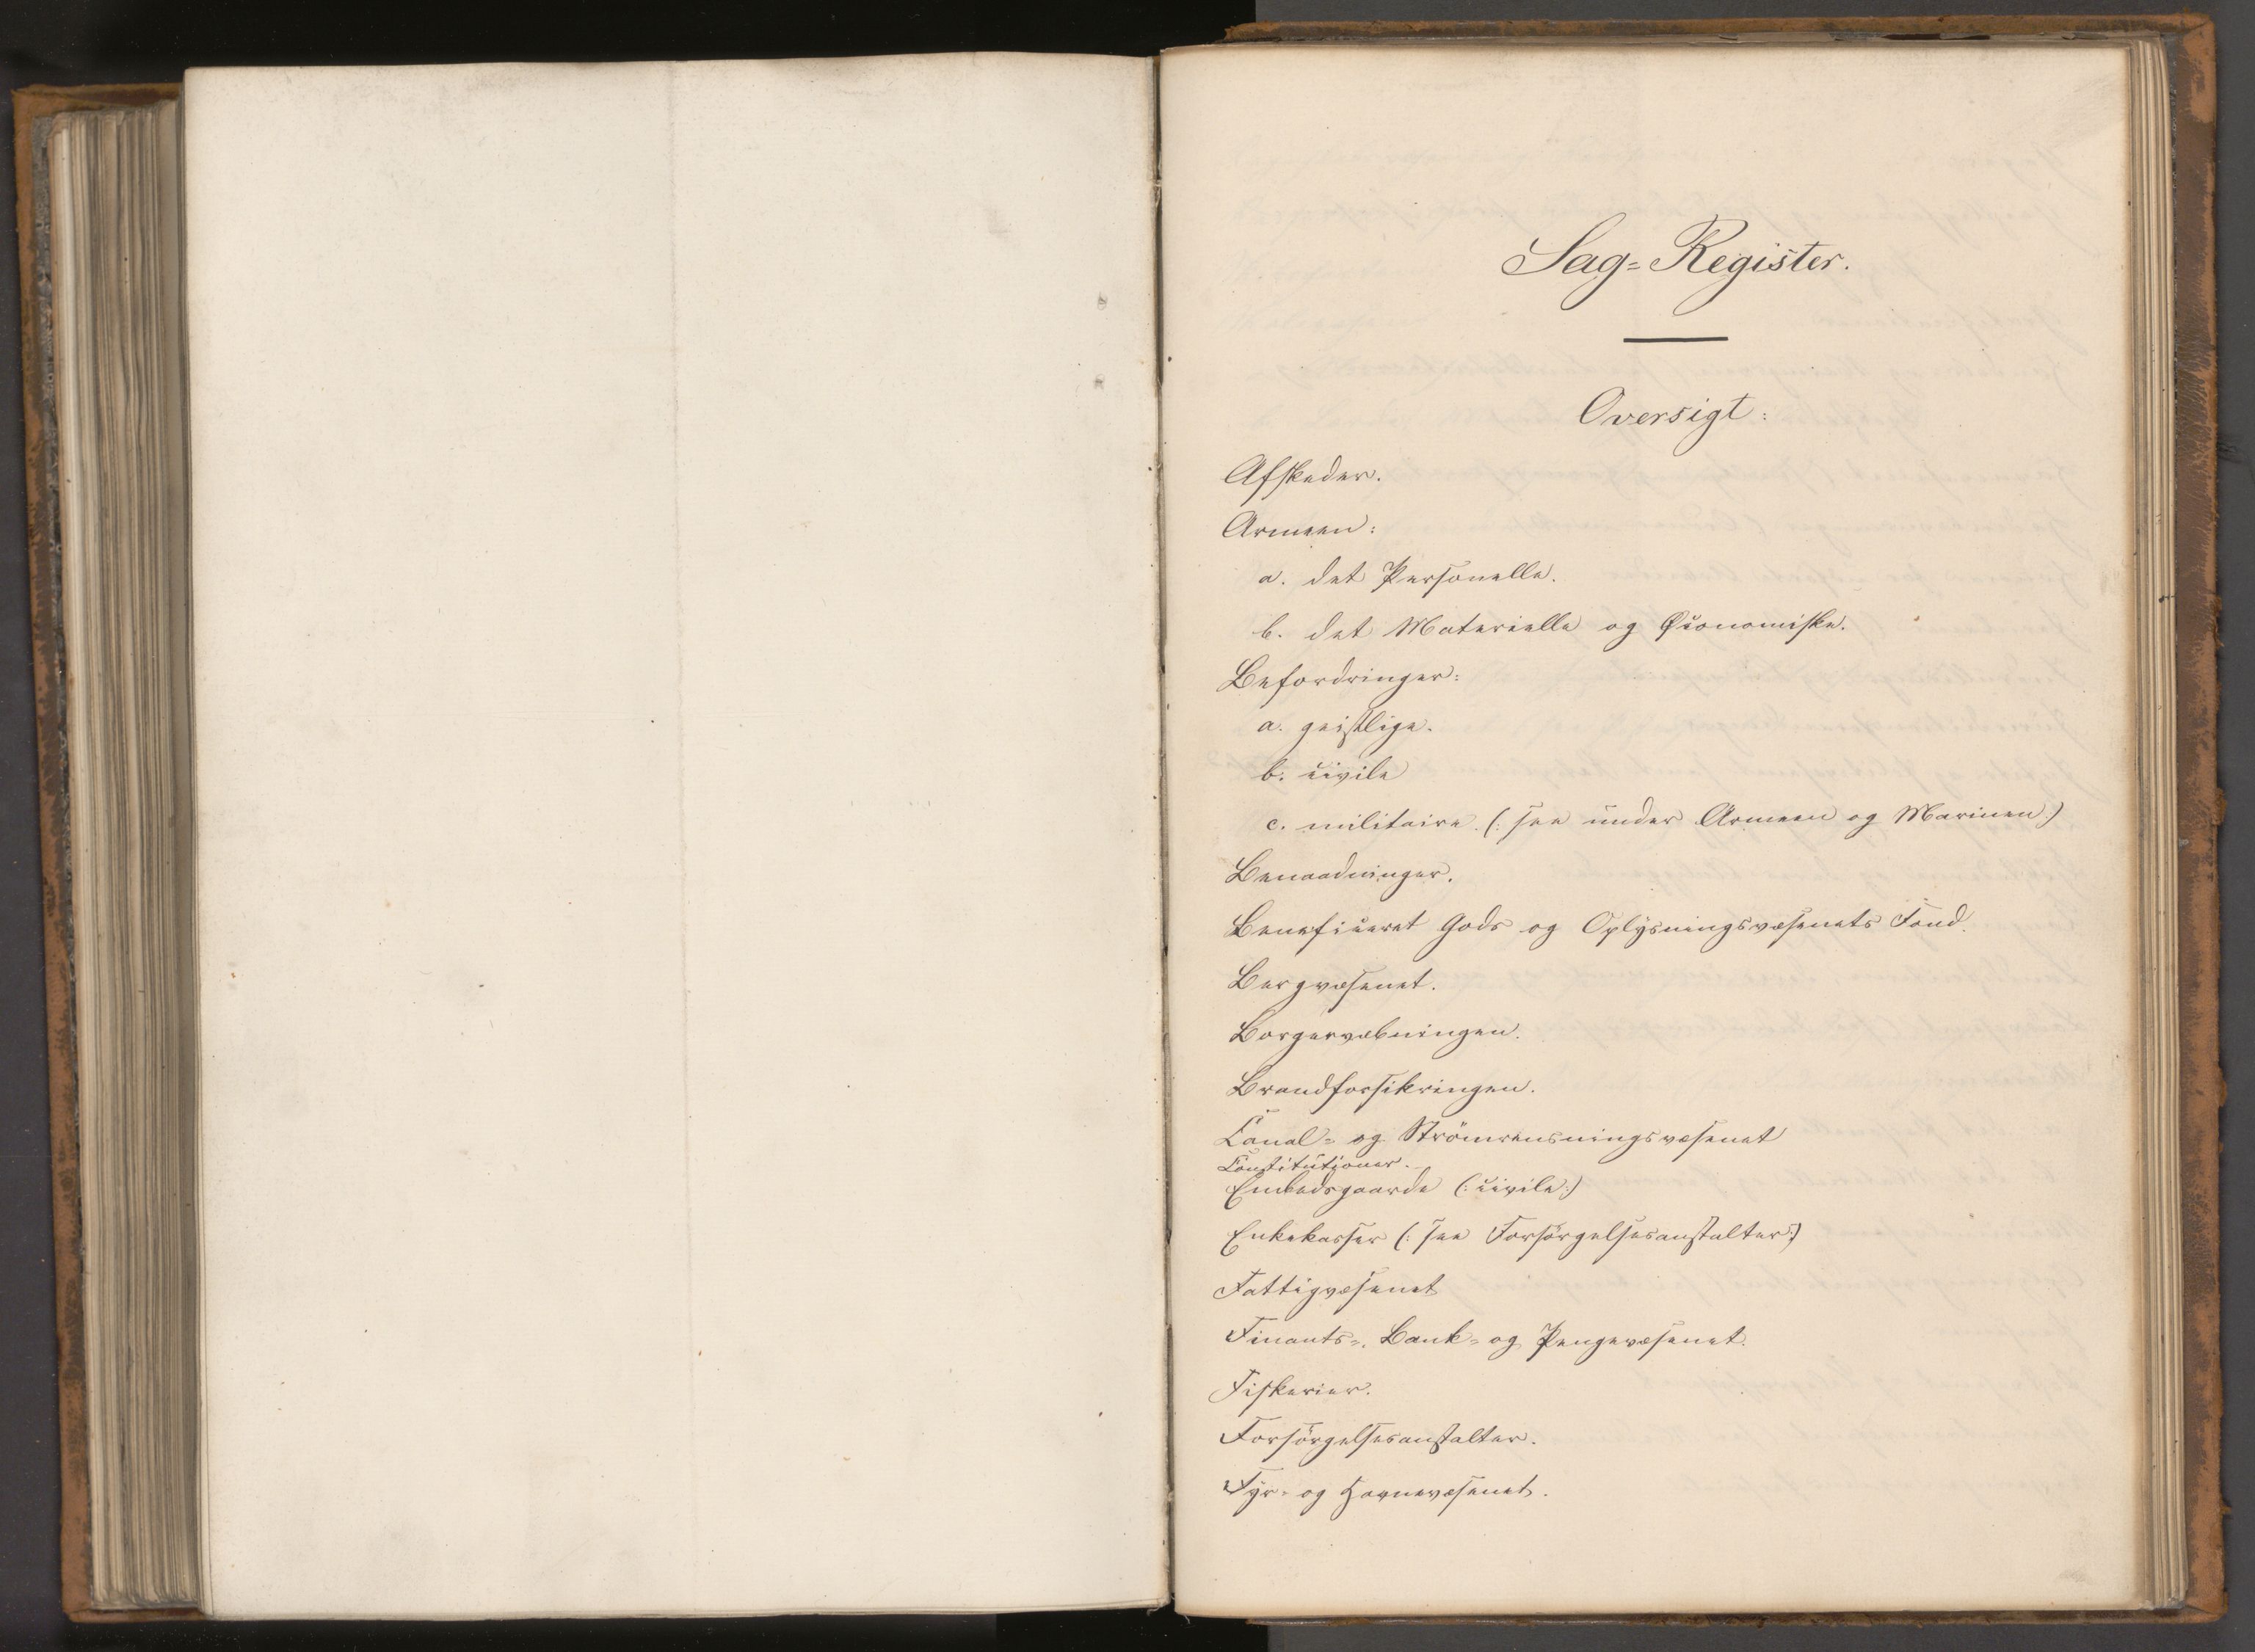 Sag-Register.
Oversigt:
Afskeder.
Armeen:
a. det Personelle.
b. det Materielle og Øconomiske.
Befordringer:
a. geistlige.
b. civile
c. militaire. (: see under Armeen og Marinen :)
Benaadninger.
Beneficeret Gods og Oplysningsvæsenets Fond.
Bergvæsenet.
Borgervæbningen.
Brandforsikringen.
Canal- og Strömrensningsvæsenet
Constitutioner.
Embedsgaarde (: civile :)
Enkekasser (: see Forsörgelsesanstalter :)
Fattigvæsenet
Finants-, Bank- og Pengevæsenet.
Fiskerier.
Forsörgelsesanstalter.
Fyr- og Havnevæsenet.